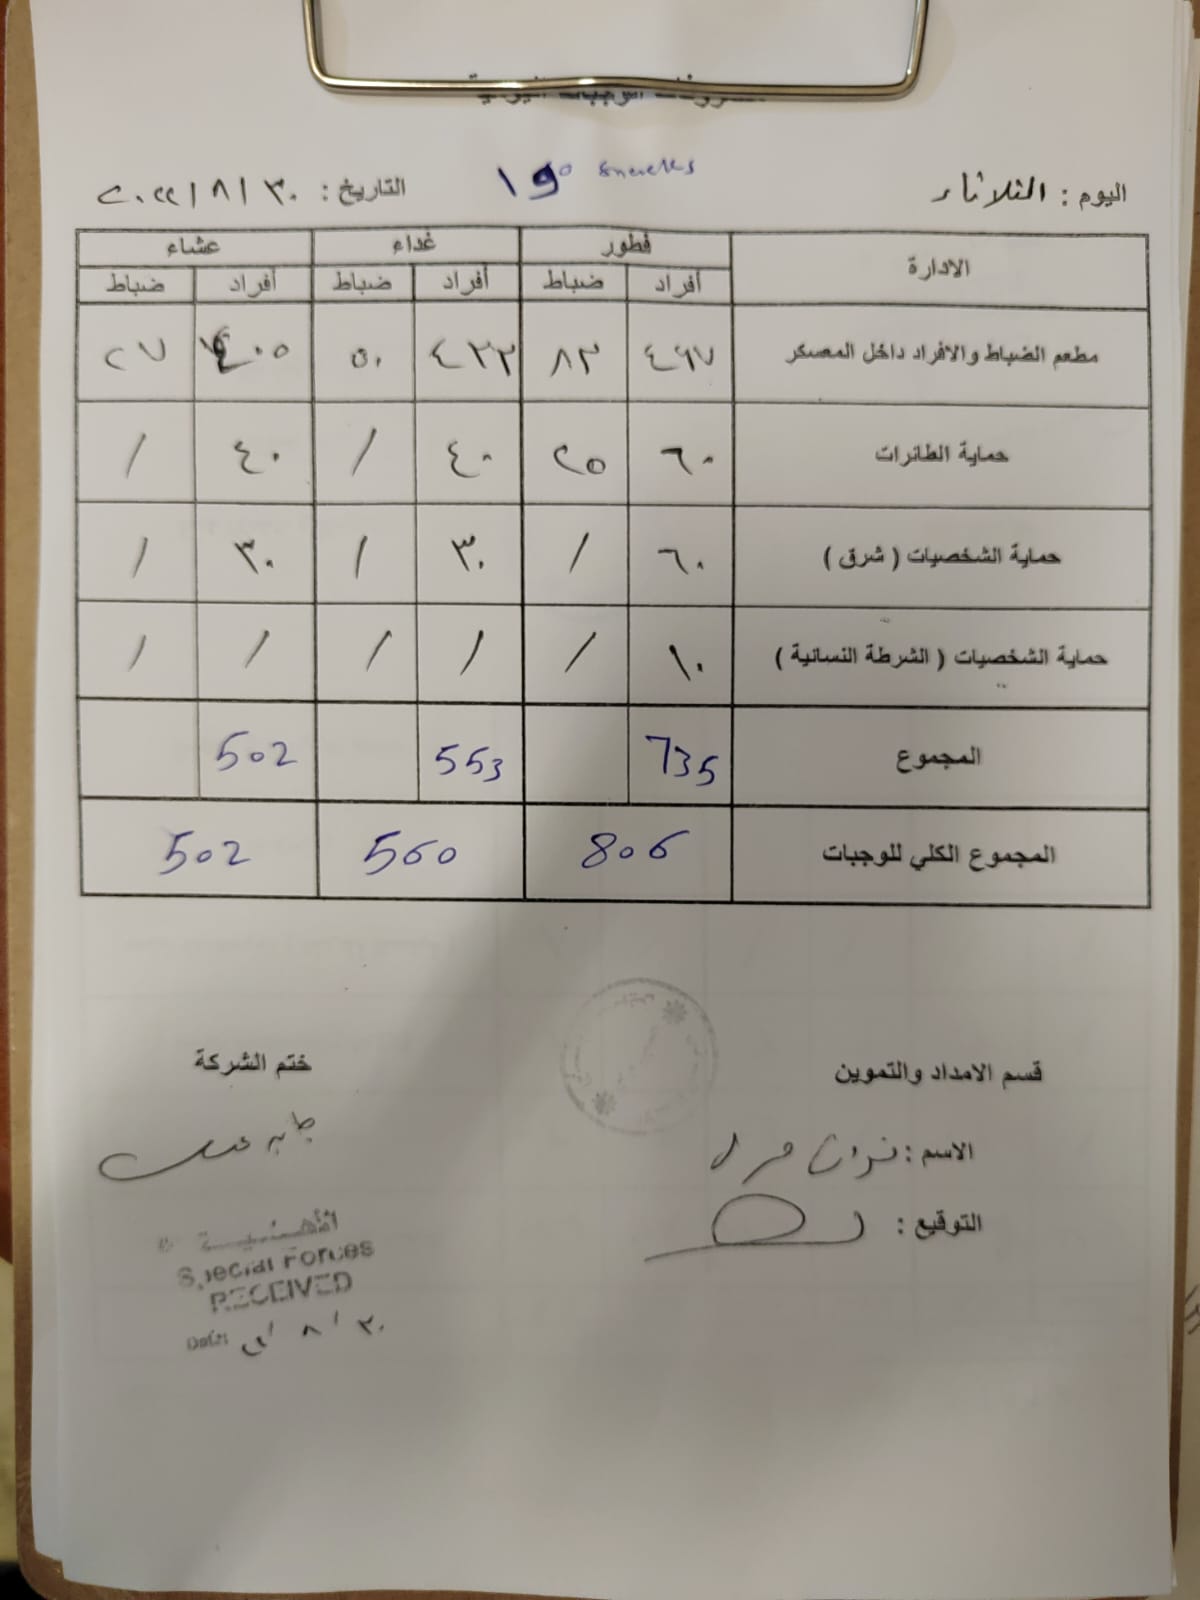 اليوم : الثلاثاء
١٩٥ snacks
التاريخ : ٣٠ / ٨ / ٢٠٢٢
الادارة فطور غداء عشاء
أفراد ضباط أفراد ضباط أفراد ضباط
مطعم الضباط والافراد داخل المعسكر ٤٩٧ ٨٣ ٤٣٣ ٥٠ ٤٠٥ ٢٧
حماية الطائرات ٦٠ ٢٥ ٤٠ / ٤٠ /
حماية الشخصيات ( شرق ) ٦٠ / ٣٠ / ٣٠ /
حماية الشخصيات ( الشرطة النسائية ) ١٠ / / / / /
المجموع 735 553 502
المجموع الكلي للوجبات 806 560 502
قسم الامداد والتموين
ختم الشركة
الاسم :
التوقيع :
Special Forces
RECEIVED
Date ٣٠ / ٨ /